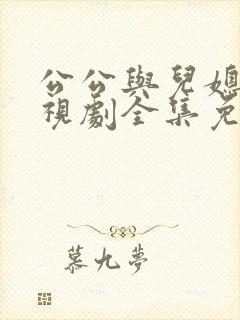 公公與兒媳
視劇全集免
慕九夢